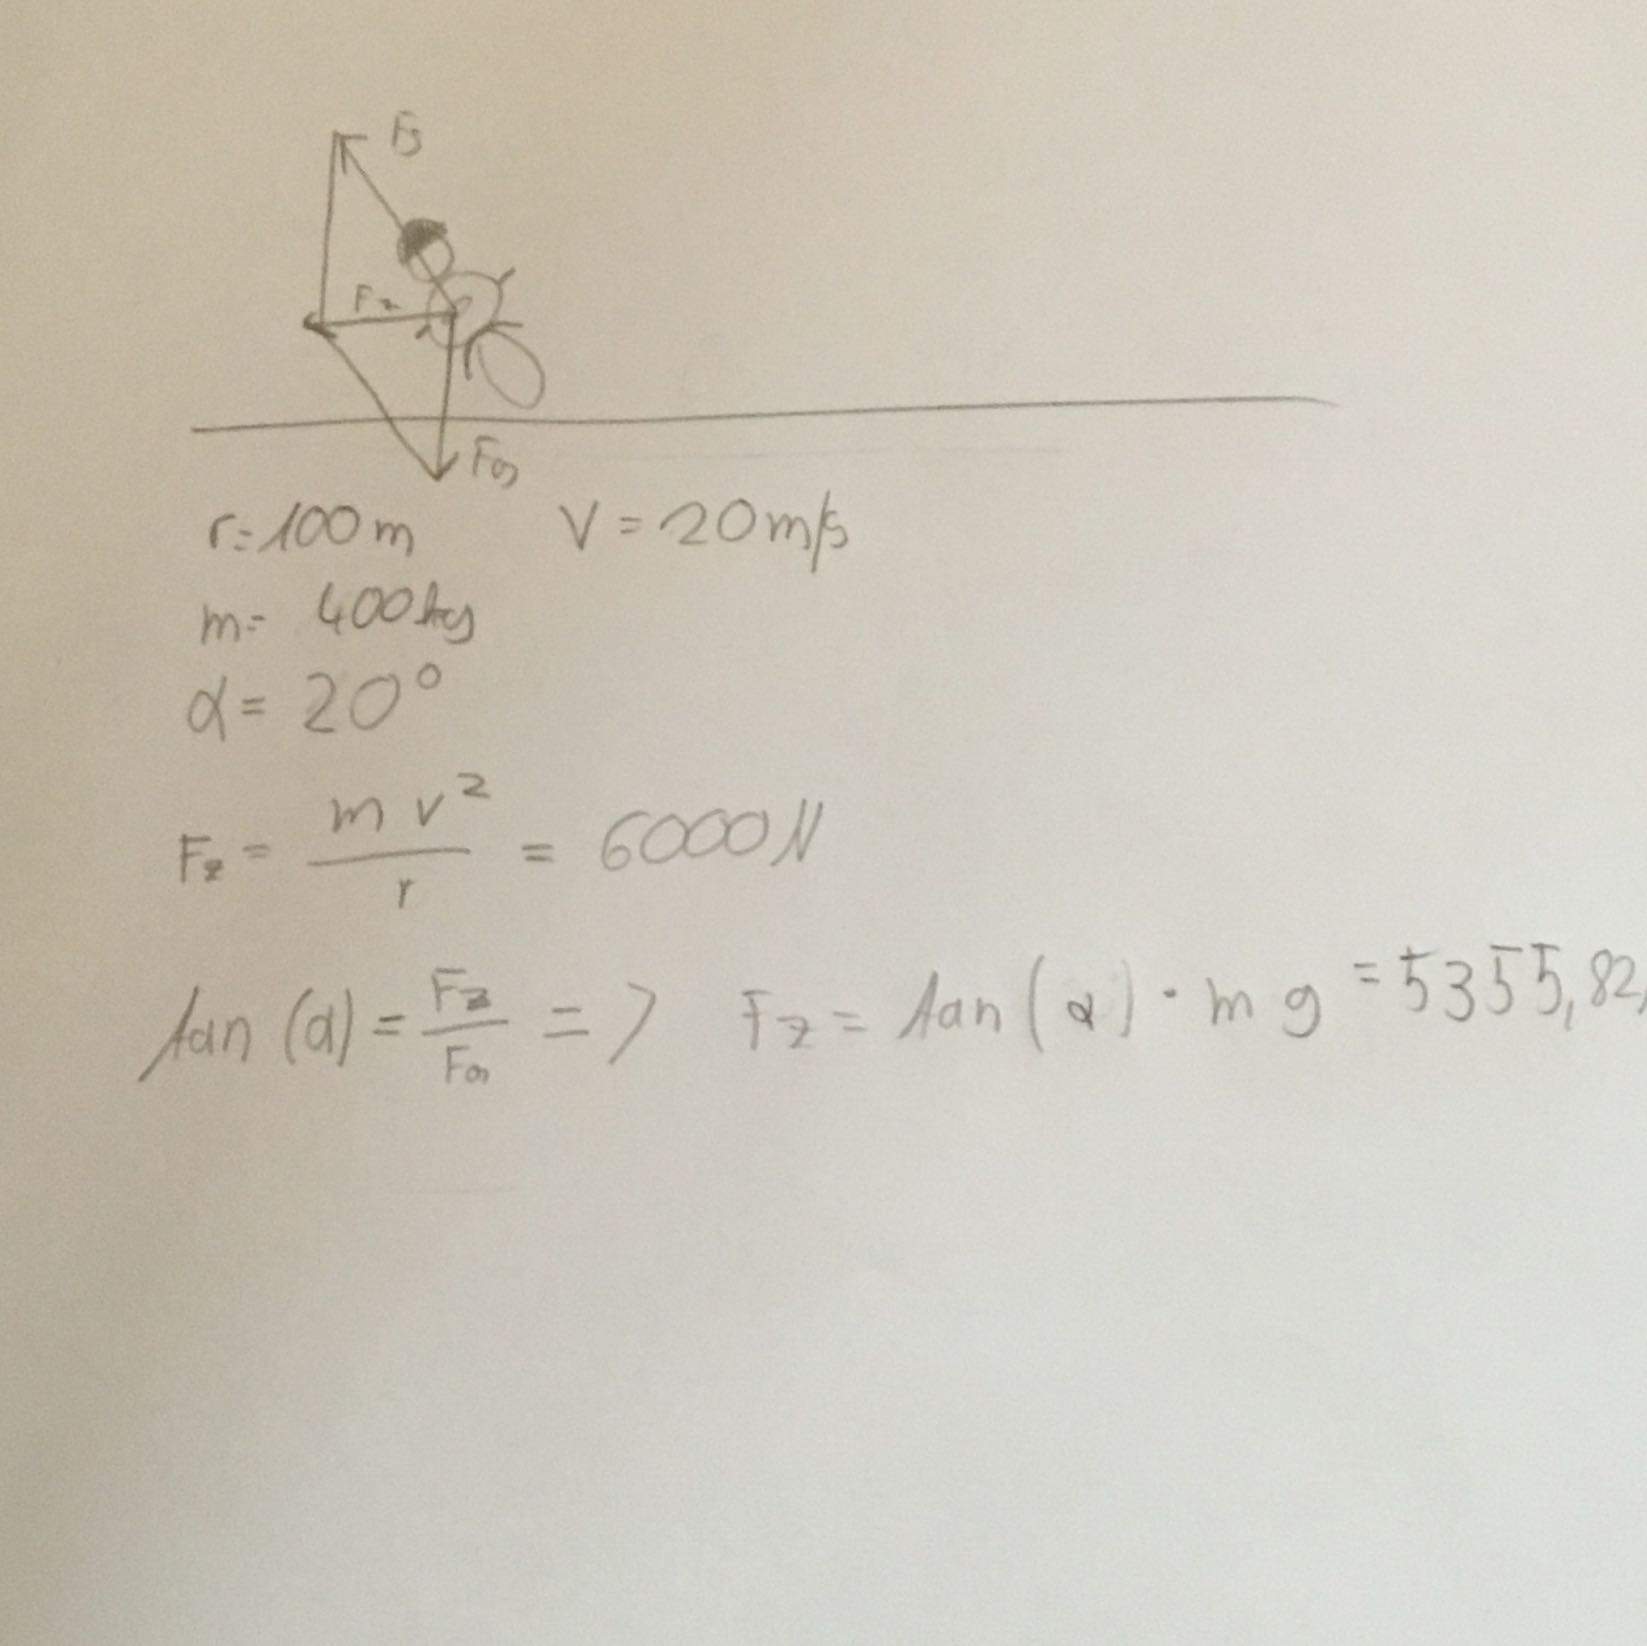 Fs
Fz
FG
r=100m V=20m/s
m= 400kg
α= 20°
Fz = m v² / r = 6000N
tan (α) = Fz / FG => Fz = tan(α) · m g = 5355,82